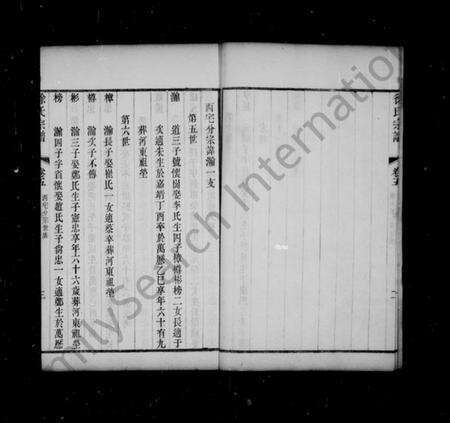 徐氏宗譜
卷五
西宅分宗諱瀚一支
第五世
瀚 道三子號懷樹娶李氏生四子樟樽彬榜二女長適于
次適朱生於嘉靖丁酉卒於萬歷乙巳享年六十有九
葬河東祖塋
第六世
樟 瀚長子娶崔氏一女適蔡卒葬河東祖塋
樽 瀚次子不傳
彬 瀚三子娶鄭氏生子憲忠享年六十六歲葬河東祖塋
榜 瀚四子字首懷娶趙氏生子尚忠一女適鄭生於萬歷
徐氏宗譜
卷五
三
FamilySearch International